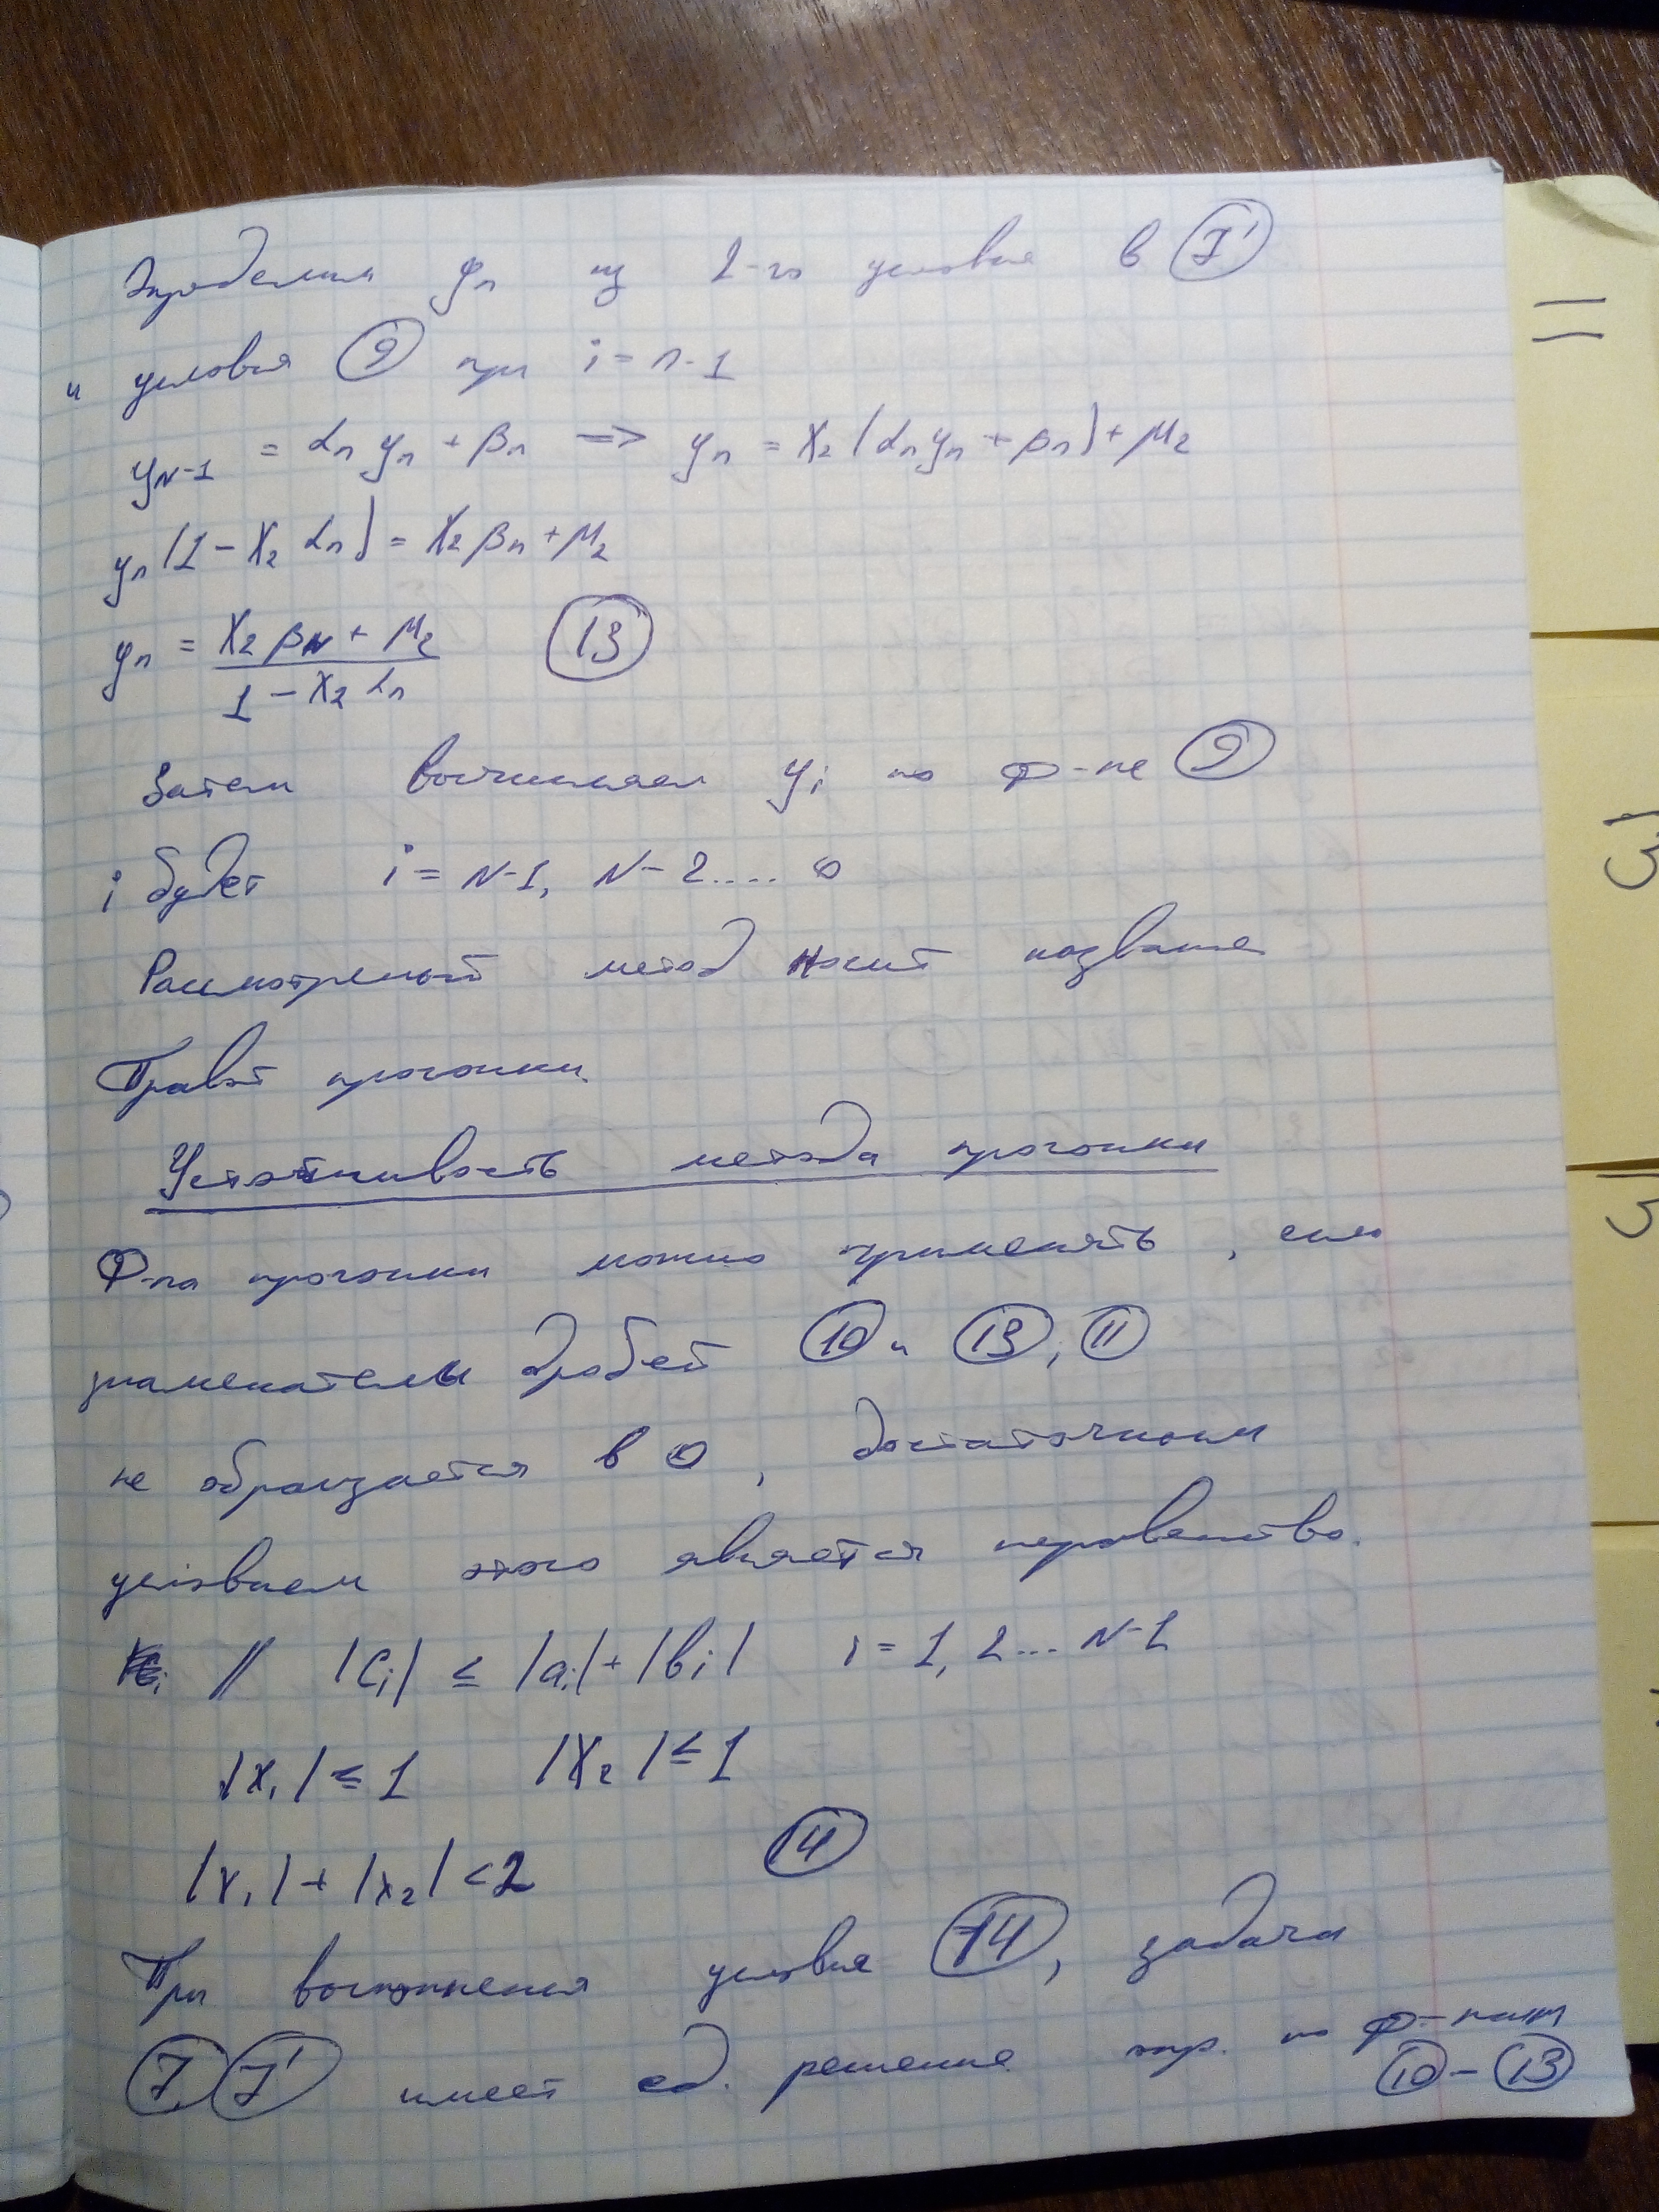 Определим yₙ из 2-го условия в (7')
и условия (9) при i = n-1
y_{N-1} = αₙ yₙ + βₙ => yₙ = X₂ (αₙ yₙ + βₙ) + μ₂
yₙ (1 - X₂ αₙ) = X₂ βₙ + μ₂
yₙ = (X₂ β_N + μ₂) / (1 - X₂ αₙ) (13)
Затем вычисляем yᵢ по ф-ле (9)
i будет i = N-1, N-2.... 0
Рассмотреный метод носит название
Правой прогонки
Устойчивость метода прогонки
Ф-ла прогонки можно применять, если
знаменатели дробей (10) и (13), (11)
не обращается в 0, достаточным
условием этого является неравенство.
// |Cᵢ| ≤ |aᵢ| + |bᵢ| i = 1, 2... N-1
|X₁| ≤ 1 |X₂| ≤ 1
|X₁| + |X₂| < 2 (14)
При выполнения условие (14), задача
(7) (7') имеет ед. решение опр. по ф-лам
(10) - (13)